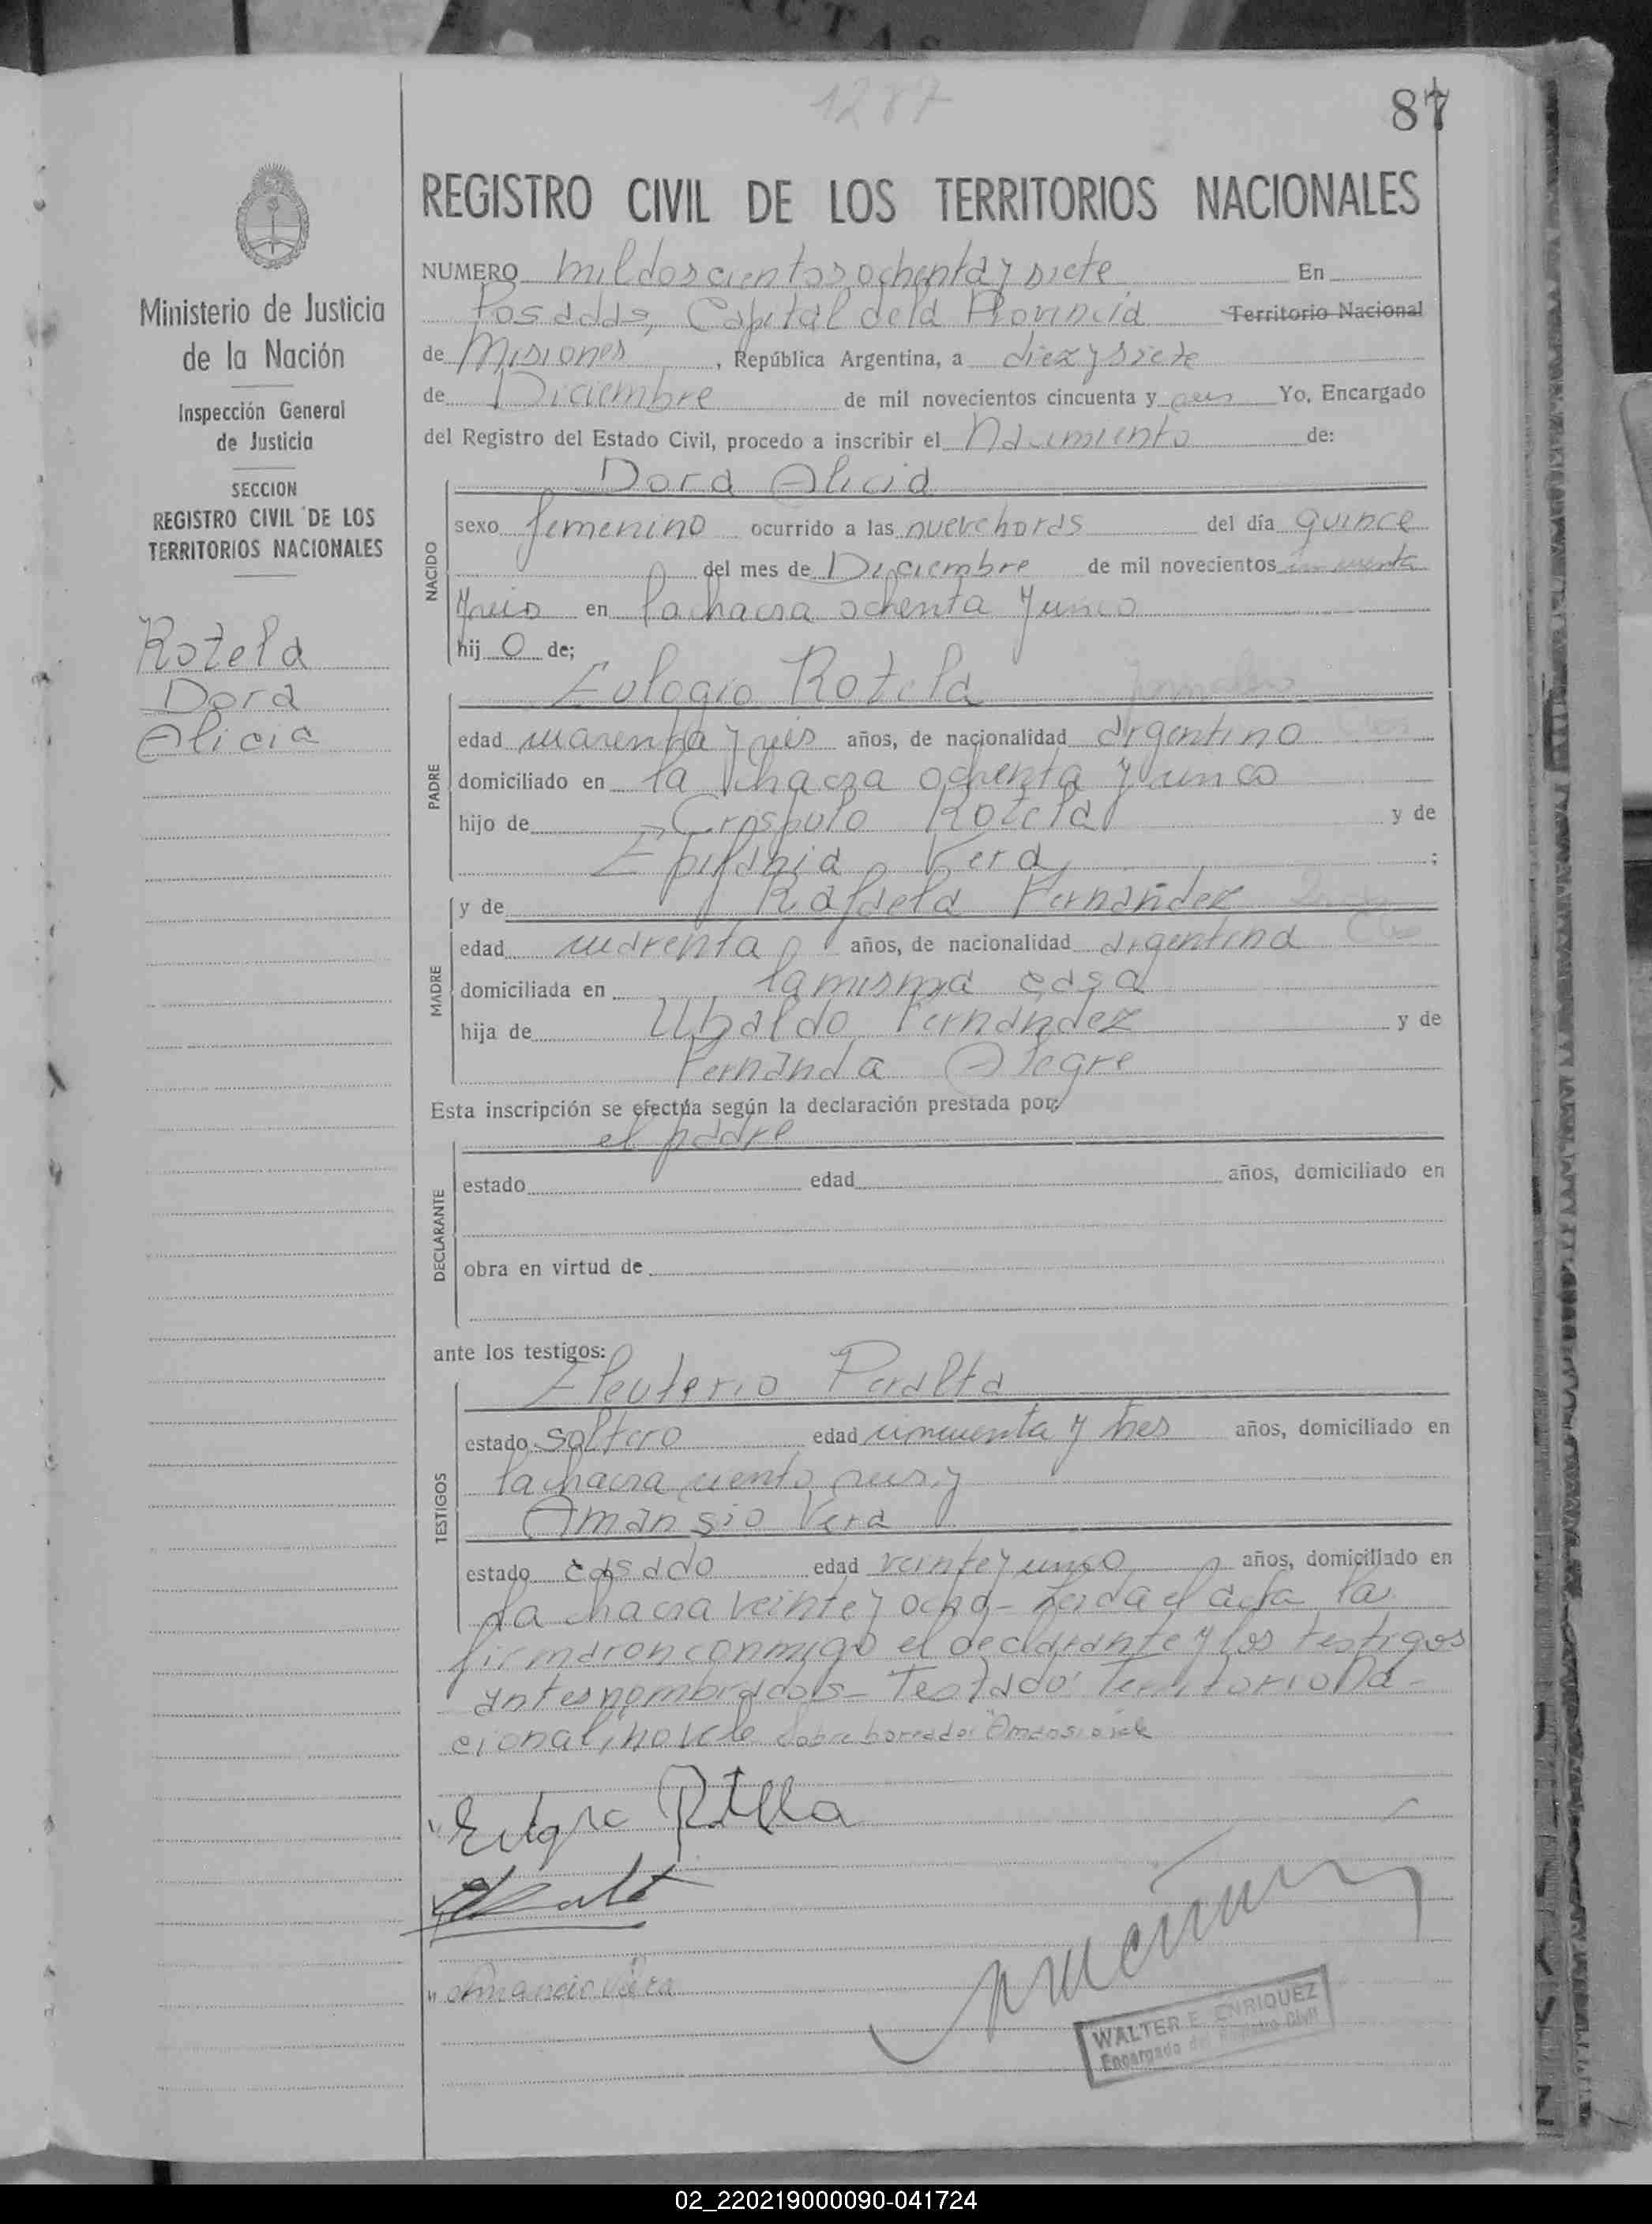 1287
87
REGISTRO CIVIL DE LOS TERRITORIOS NACIONALES
Ministerio de Justicia
de la Nación
Inspección General
de Justicia
SECCION
REGISTRO CIVIL DE LOS
TERRITORIOS NACIONALES
Rotela
Dora
Alicia
NUMERO mil doscientos ochenta y siete En
Posadas, Capital de la Provincia Territorio Nacional
de Misiones, República Argentina, a diez y siete
de Diciembre de mil novecientos cincuenta y seis Yo, Encargado
del Registro del Estado Civil, procedo a inscribir el Nacimiento de:
Dora Alicia
NACIDO
sexo femenino ocurrido a las nueve horas del día quince
del mes de Diciembre de mil novecientos cincuenta
y seis en la chacra ochenta y cinco
hij o de;
Eulogio Rotela
PADRE
edad cuarenta y seis años, de nacionalidad argentino
domiciliado en la chacra ochenta y cinco
hijo de Crispulo Rotela y de
Epifania Vera ;
y de Rafaela Fernández
MADRE
edad cuarenta años, de nacionalidad argentina
domiciliada en la misma casa
hija de Ubaldo Fernández y de
Fernanda Alegre
Esta inscripción se efectúa según la declaración prestada por:
el padre
DECLARANTE
estado edad años, domiciliado en
obra en virtud de
ante los testigos:
Eleuterio Peralta
TESTIGOS
estado soltero edad cincuenta y tres años, domiciliado en
la chacra ciento seis y
Amansio Vera
estado casado edad veinte y cinco años, domiciliado en
la chacra veinte y ocho - Leida el acta la
firmaron conmigo el declarante y los testigos
antes nombrados - Testado: Territorio Na-
cional, no vale Sobre borrado: "Amansio" vale
Eulogio Rotela
Amancio Vera
WALTER E. ENRIQUEZ
Encargado del Registro Civil
02_220219000090-041724